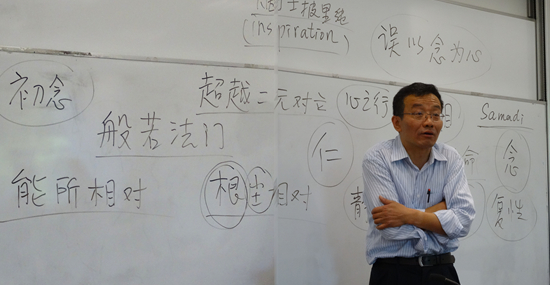 烟士披里纯
(inspiration)
误以念为心
初念
超越二元对立
心之行相
Samadi
般若法门
仁
命
念
能所相对
根尘相对
复性